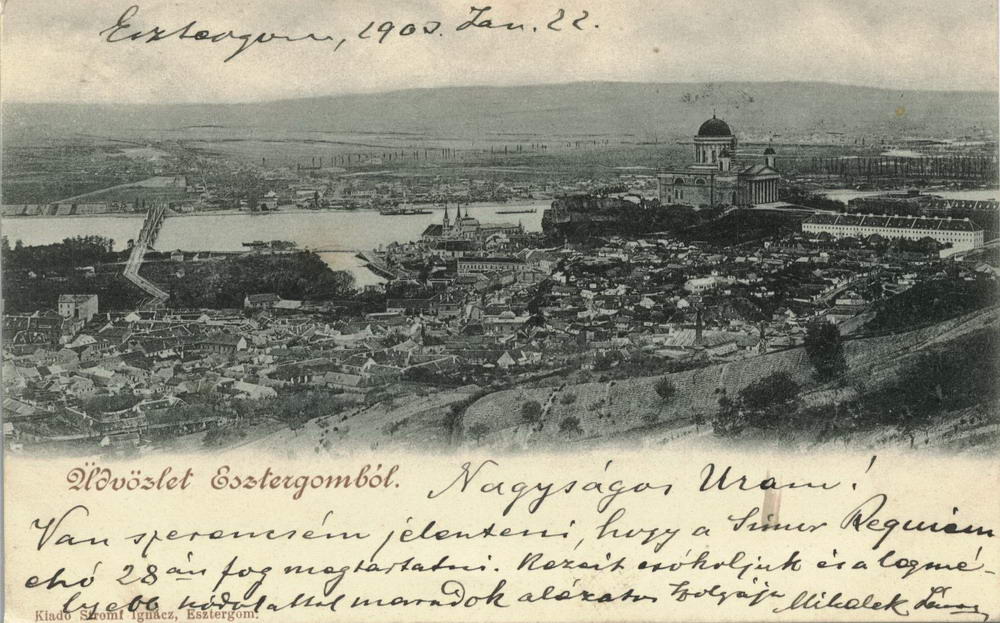 Esztergom, 1903. Jan. 22.
Üdvözlet Esztergomból.
Nagyságos Uram!
Van szerencsém jelenteni, hogy a Simor Requiem
e hó 28-án fog megtartatni. Kezeit csókoljuk és a legmé-
lyebb hódolattal maradok alázatos szolgája Mihalek
Kiadó Stromf Ignácz, Esztergom.